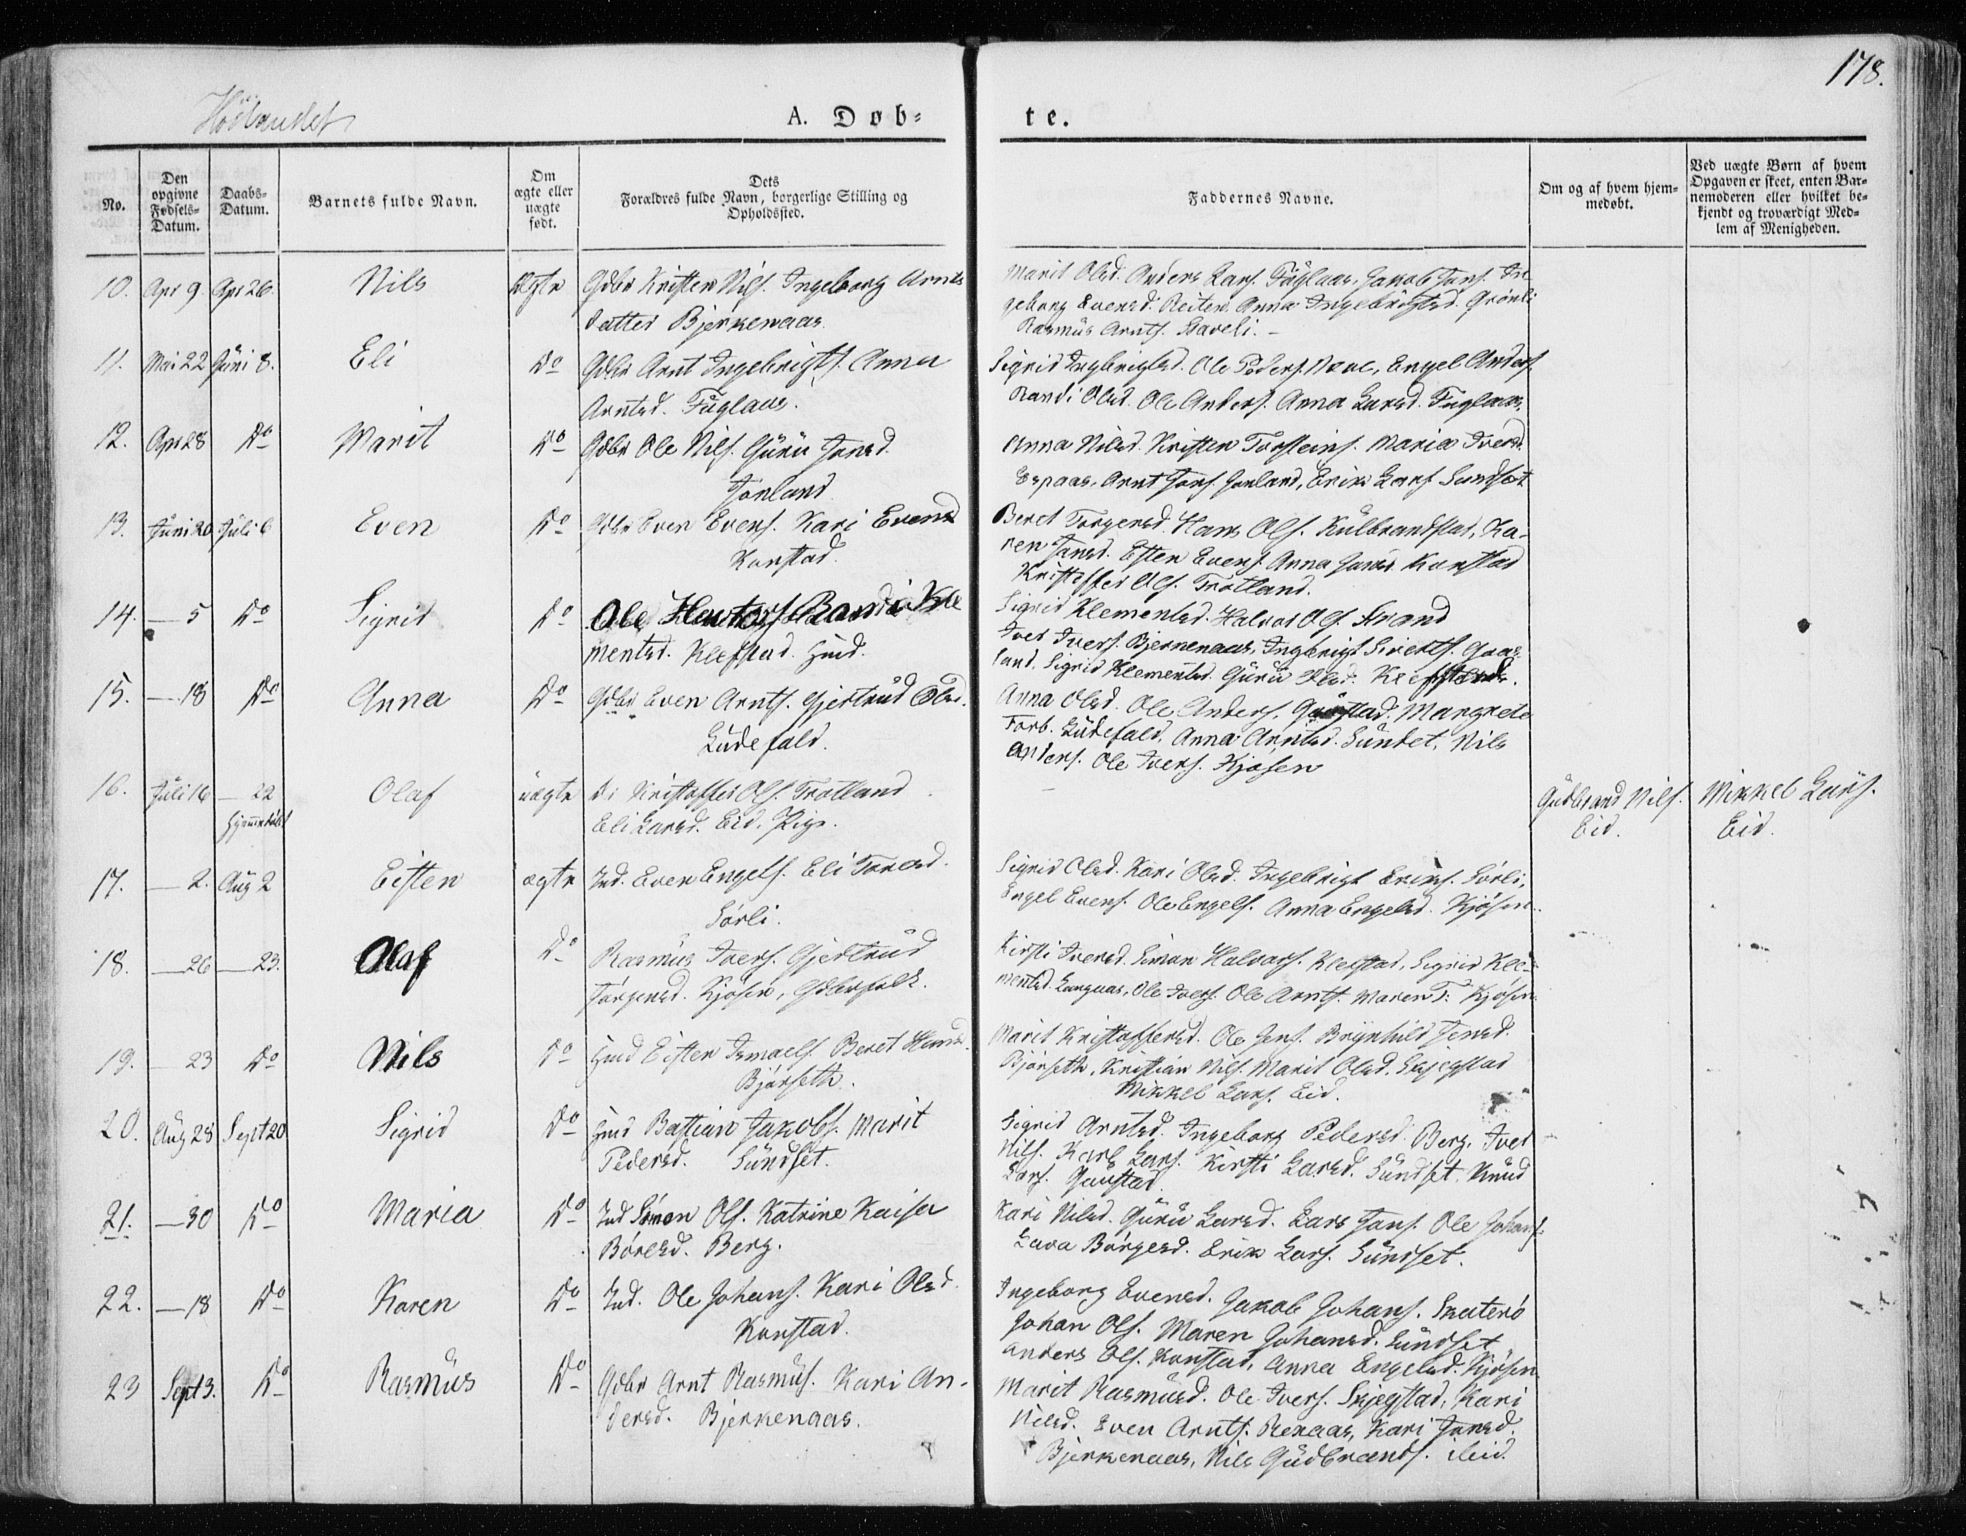 178.
Höilandet
A. Døb-
te.
No.
Den opgivne Fødsels-Datum.
Daabs-Datum.
Barnets fulde Navn.
Om ægte eller uægte født.
Dets Forældres fulde Navn, borgerlige Stilling og Opholdssted.
Faddernes Navne.
Om og af hvem hjem-medøbt.
Ved uægte Børn af hvem Opgaven er skeet, enten Bar-nemoderen eller hvilket be-kjendt og troværdigt Med-lem af Menigheden.
10. Apr 9. Apr 26 Nils Ægte Gdbr Kristen Nils. Ingeborg Arnts
datter Bjerkenaas
Marit Olsd. Anders Lars. Füglaas, Jakob Jans. In
geborg Evensd. Reiten Anna Ingebrigtsd. Grönli
Rasmüs Arnts. Staveli.
11. Mai 22 Jüni 8. Eli Do Gdbr Arnt Ingebrigts. Anna
Arntsd. Füglaas.
Sigrid Ingbrigtsd. Ole Peders. Engel Anders.
Randi Olsd. Ole Anders. Anna Larsd. Füglaas.
12. Apr 28 Do Marit Do Gdbr Ole Nils. Gürü Jonsd.
Jonland
Anna Nilsd. Kristen Torsteins. Maria Iversd.
Espaas, Arnt Jons. Jonland, Erik Lars Sundset
13. Jüni 20 Jüli 6 Even Do Gdbr Even Evens. Kari Evensd
Konstad.
Beret Torgersd. Hans Ols. Külbrandstad, Ka-
ren Jansd. Esten Evens. Anna Jansd. Konstad
Kristoffer Ols. Trotland.
14. — 5 Do Sigrid Do Ole Randi Kle
mentsd. Klefstad. Hmd.
Sigrid Klementsd. Halvor Ols. Strand
Iver Ivers. Bjerkenaas, Ingbrigt Siverts. Gaas
land. Sigrid Klementsd. Gürü Klefstad.
15. — 18 Do Anna Do Gdbr Even Arnts. Gjertrüd Olsd.
Lüdefald.
Anna Olsd. Ole Anders. Margrete
Torb. Lüdefald. Anna Arntsd. Sündet, Nils
Anders. Ole Ivers. Kjösen
16. Jüli 16 — 22 Hjemmedöbt Olaf üægte Kristoffer Ols. Trotland
Eli Larsd. Eid. Pige.
Güdbrand Nils. Eid.
Mikkel Lars. Eid.
17. — 2. Aug 2 Eisten ægte Ind. Even Engels. Eli
Sörli.
Sigrid Olsd. Kari Olsd. Ingebrigt Eriks. Sörli,
Engel Evens. Ole Engels. Anna Engelsd. Kjösen
18. — 26 — 23. Olaf Do Rasmüs Ivers. Gjertrüd
Torgersd. Kjösen, Gdbrfolk.
Kirsti Iversd. Simon Halvors. Klefstad, Sigrid Kle-
mentsd. Ole Ivers. Ole Arnts. Maren T. Kjösen
19. — 23 Do Nils Do Hmd Eisten Ismaels. Beret Hansd.
Bjørseth.
Marit Kristoffersd. Ole Jens. Brynhild Jensd.
Bjørseth, Kristian Nils. Marit Olsd. Skjegstad
Mikkel Lars. Eid.
20. Aug 28 Sept 20 Sigrid Do Hmd Bastian Jakobs. Marit
Pedersd. Sündset.
Sigrid Arntsd. Ingeborg Pedersd. Berg. Iver
Nils. Karl Lars. Kirsti Larsd. Sündset. Knüd
Lars. Gaustad
21. — 30 Do Maria Do Ind Simon Ols. Katrine Kaisa
Böresd. Berg.
Kari Nilsd. Gürü Larsd. Lars Jans. Ole Johans.
Lava Börgesd. Erik Lars. Sündset.
22. — 18 Do Karen Do Ind. Ole Johans. Kari Olsd
Konstad.
Ingeborg Evensd. Jakob Johans. Skaterö
Johan Ols. Maren Johansd. Sündset
Anders Ols. Konstad, Anna Engelsd. Kjösen
23 Sept 3. Do Rasmüs Do Gdbr Arnt Rasmüs. Kari An-
dersd. Bjerkenaas.
Marit Rasmüsd. Ole Ivers. Skjegstad, Kari
Nilsd. Even Arnts. Renaas, Kari Jonsd.
Bjerkenaas, Nils Güdbrands. Eid.